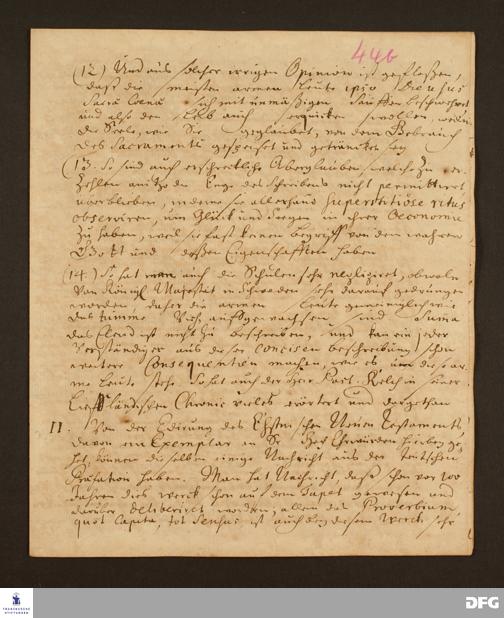 446
(12.) Und aus solcher irrigen Opinion ist geflossen,
daß die meisten armen Leute ipso die usus
Sacræ Cœnæ sich mit unmäßigen Sauffen beschwehret
und also den Leib auch erquicken wollen, weilen
die Seele, wie Sie geglaubet, von dem Gebrauch
des Sacraments gespeiset und geträncket sey.
(13. So sind auch erschreckliche Aberglauben, welche zu er-
zehlen anitzo die Enge des Schreibens nicht permittiret
überblieben, indeme sie allerhand superstitiöse ritus
observiren, um Glück und Segen in ihrer Oeconomie
zu haben, weil sie fast keinen begriff von dem wahren
Gott und deßen Eigenschafften haben
(14.) So hat man auch die Schulen sehr negligiret, obwoln
von Königl. Majestät in Schweden sehr darauf gedrungen
worden daher die armen Leute gemeiniglich wie
das tumme Vieh auffgewachsen sind Suma
das Elend ist nicht zu beschreiben, und kan ein jeder
Verständiger aus dieser concisen beschreibung schon
weitere Consequentien machen, wie es um diese ar-
me Leute stehe. So hat auch der Herr Past. Kelch in seiner
Liefländischen Chronic vieles erörtert und dargethan
II. Von der Edirung des Ehstnischen Neuen Testaments
davon ein Exemplar an Sr. HochEhrwürden hierbey ge-
het, können dieselben einige Nachricht aus der Teutschen
Præfation haben. Man hat Nachricht, daß schon vor 100
Jahren dies werck schon auf dem Tapet gewesen und
darüber deliberiret worden, allein das Proverbium,
quot Capita, tot Sensus ist auch bey diesem Werck sehr
FRANCKESCHE STIFTUNGEN
DFG